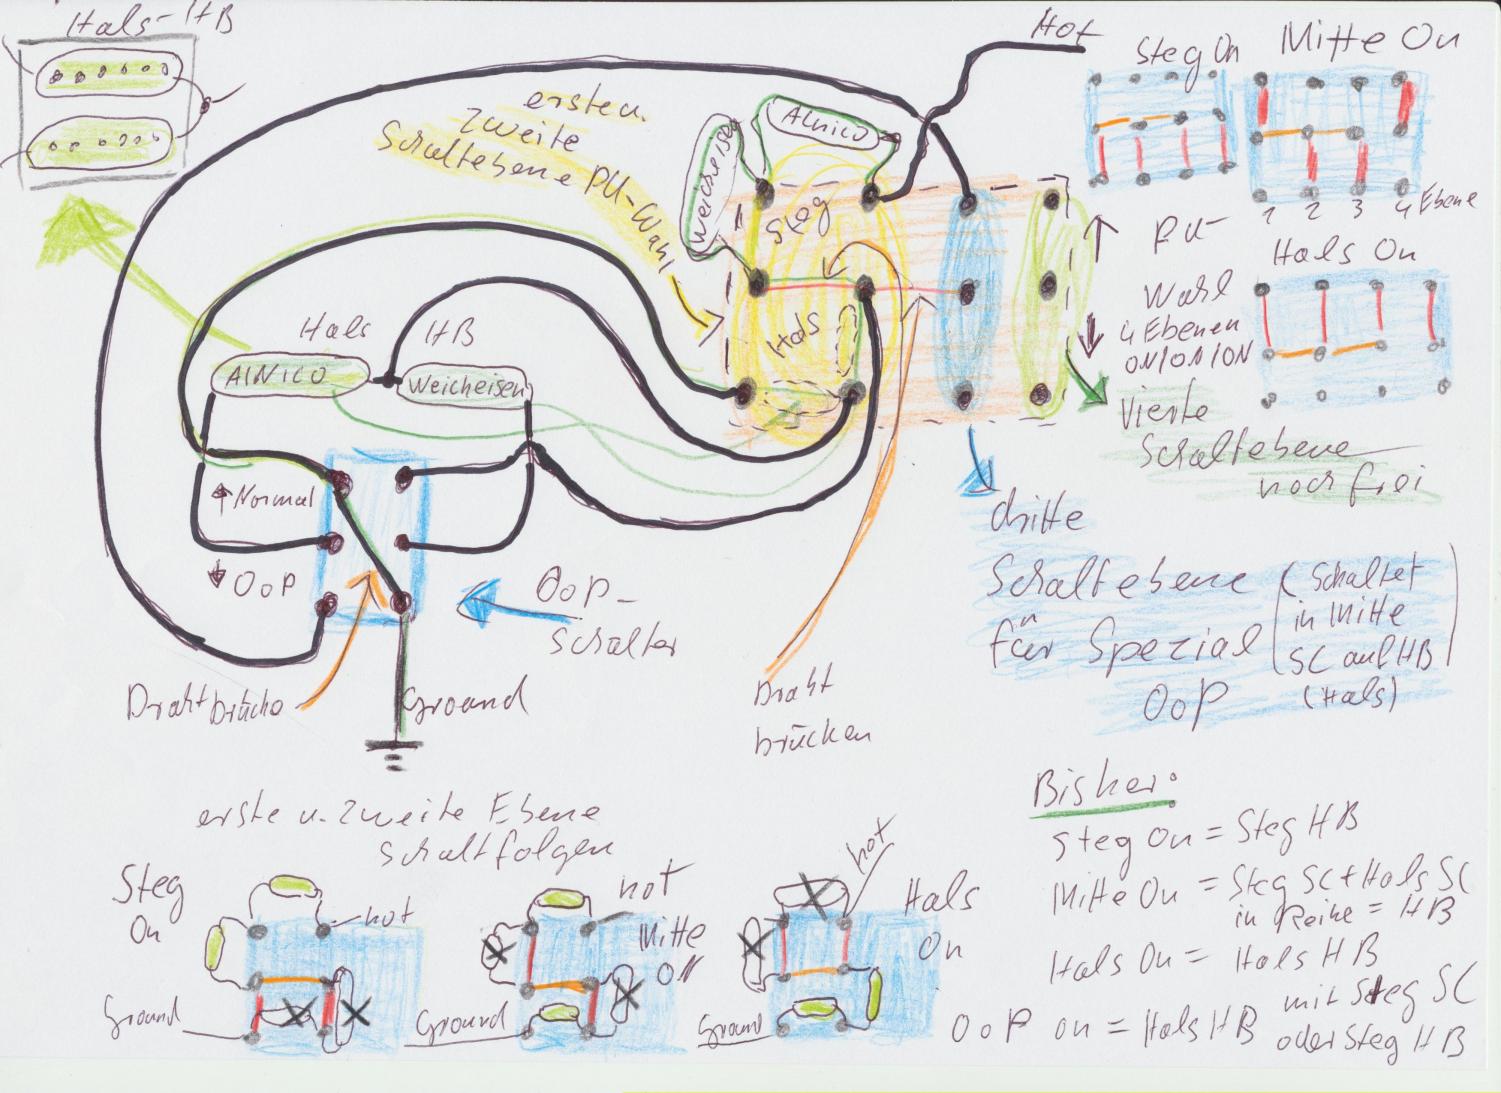 Hals-HB
Hot
Steg On
Mitte On
ersten.
zweite
Schaltebene PU-Wahl
AlNiCo
Weicheisen
Steg
Hals
1 2 3 4 Ebene
PU-
Wahl
4 Ebenen
ON/ON/ON
Hals On
Vierte
Schaltebene
noch frei
Hals HB
AlNiCo
Weicheisen
Normal
OoP
OoP-
Schalter
Drahtbrücke
Ground
Draht
brücken
dritte
Schaltebene
für Spezial
OoP
(Schaltet
in Mitte
SC auf HB
(Hals)
erste u. zweite Ebene
Schaltfolgen
Steg
On
hot
Ground
hot
Mitte
On
Ground
hot
Hals
On
Ground
Bisher:
Steg On = Steg HB
Mitte On = Steg SC + Hals SC
in Reihe = HB
Hals On = Hals HB
OoP on = Hals HB mit Steg SC
oder Steg HB